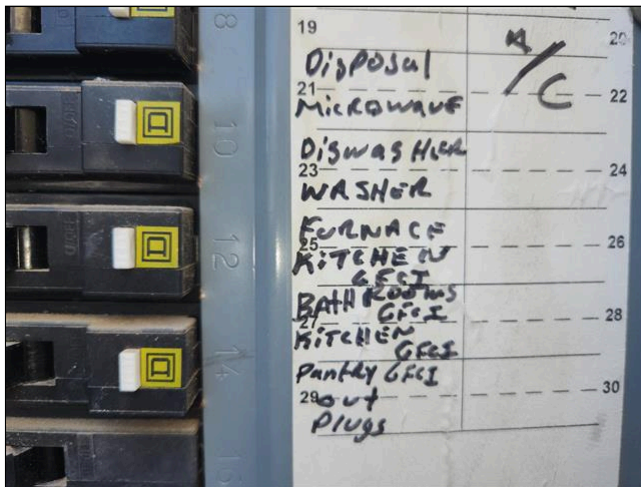 8
10
12
14
16
19
20
Disposal
A/C
21
22
Microwave
Diswasher
23
24
Washer
Furnace
25
26
Kitchen
GFCI
Bathrooms
GFCI
27
28
Kitchen
GFCI
Pantry GFCI
29
30
out
Plugs